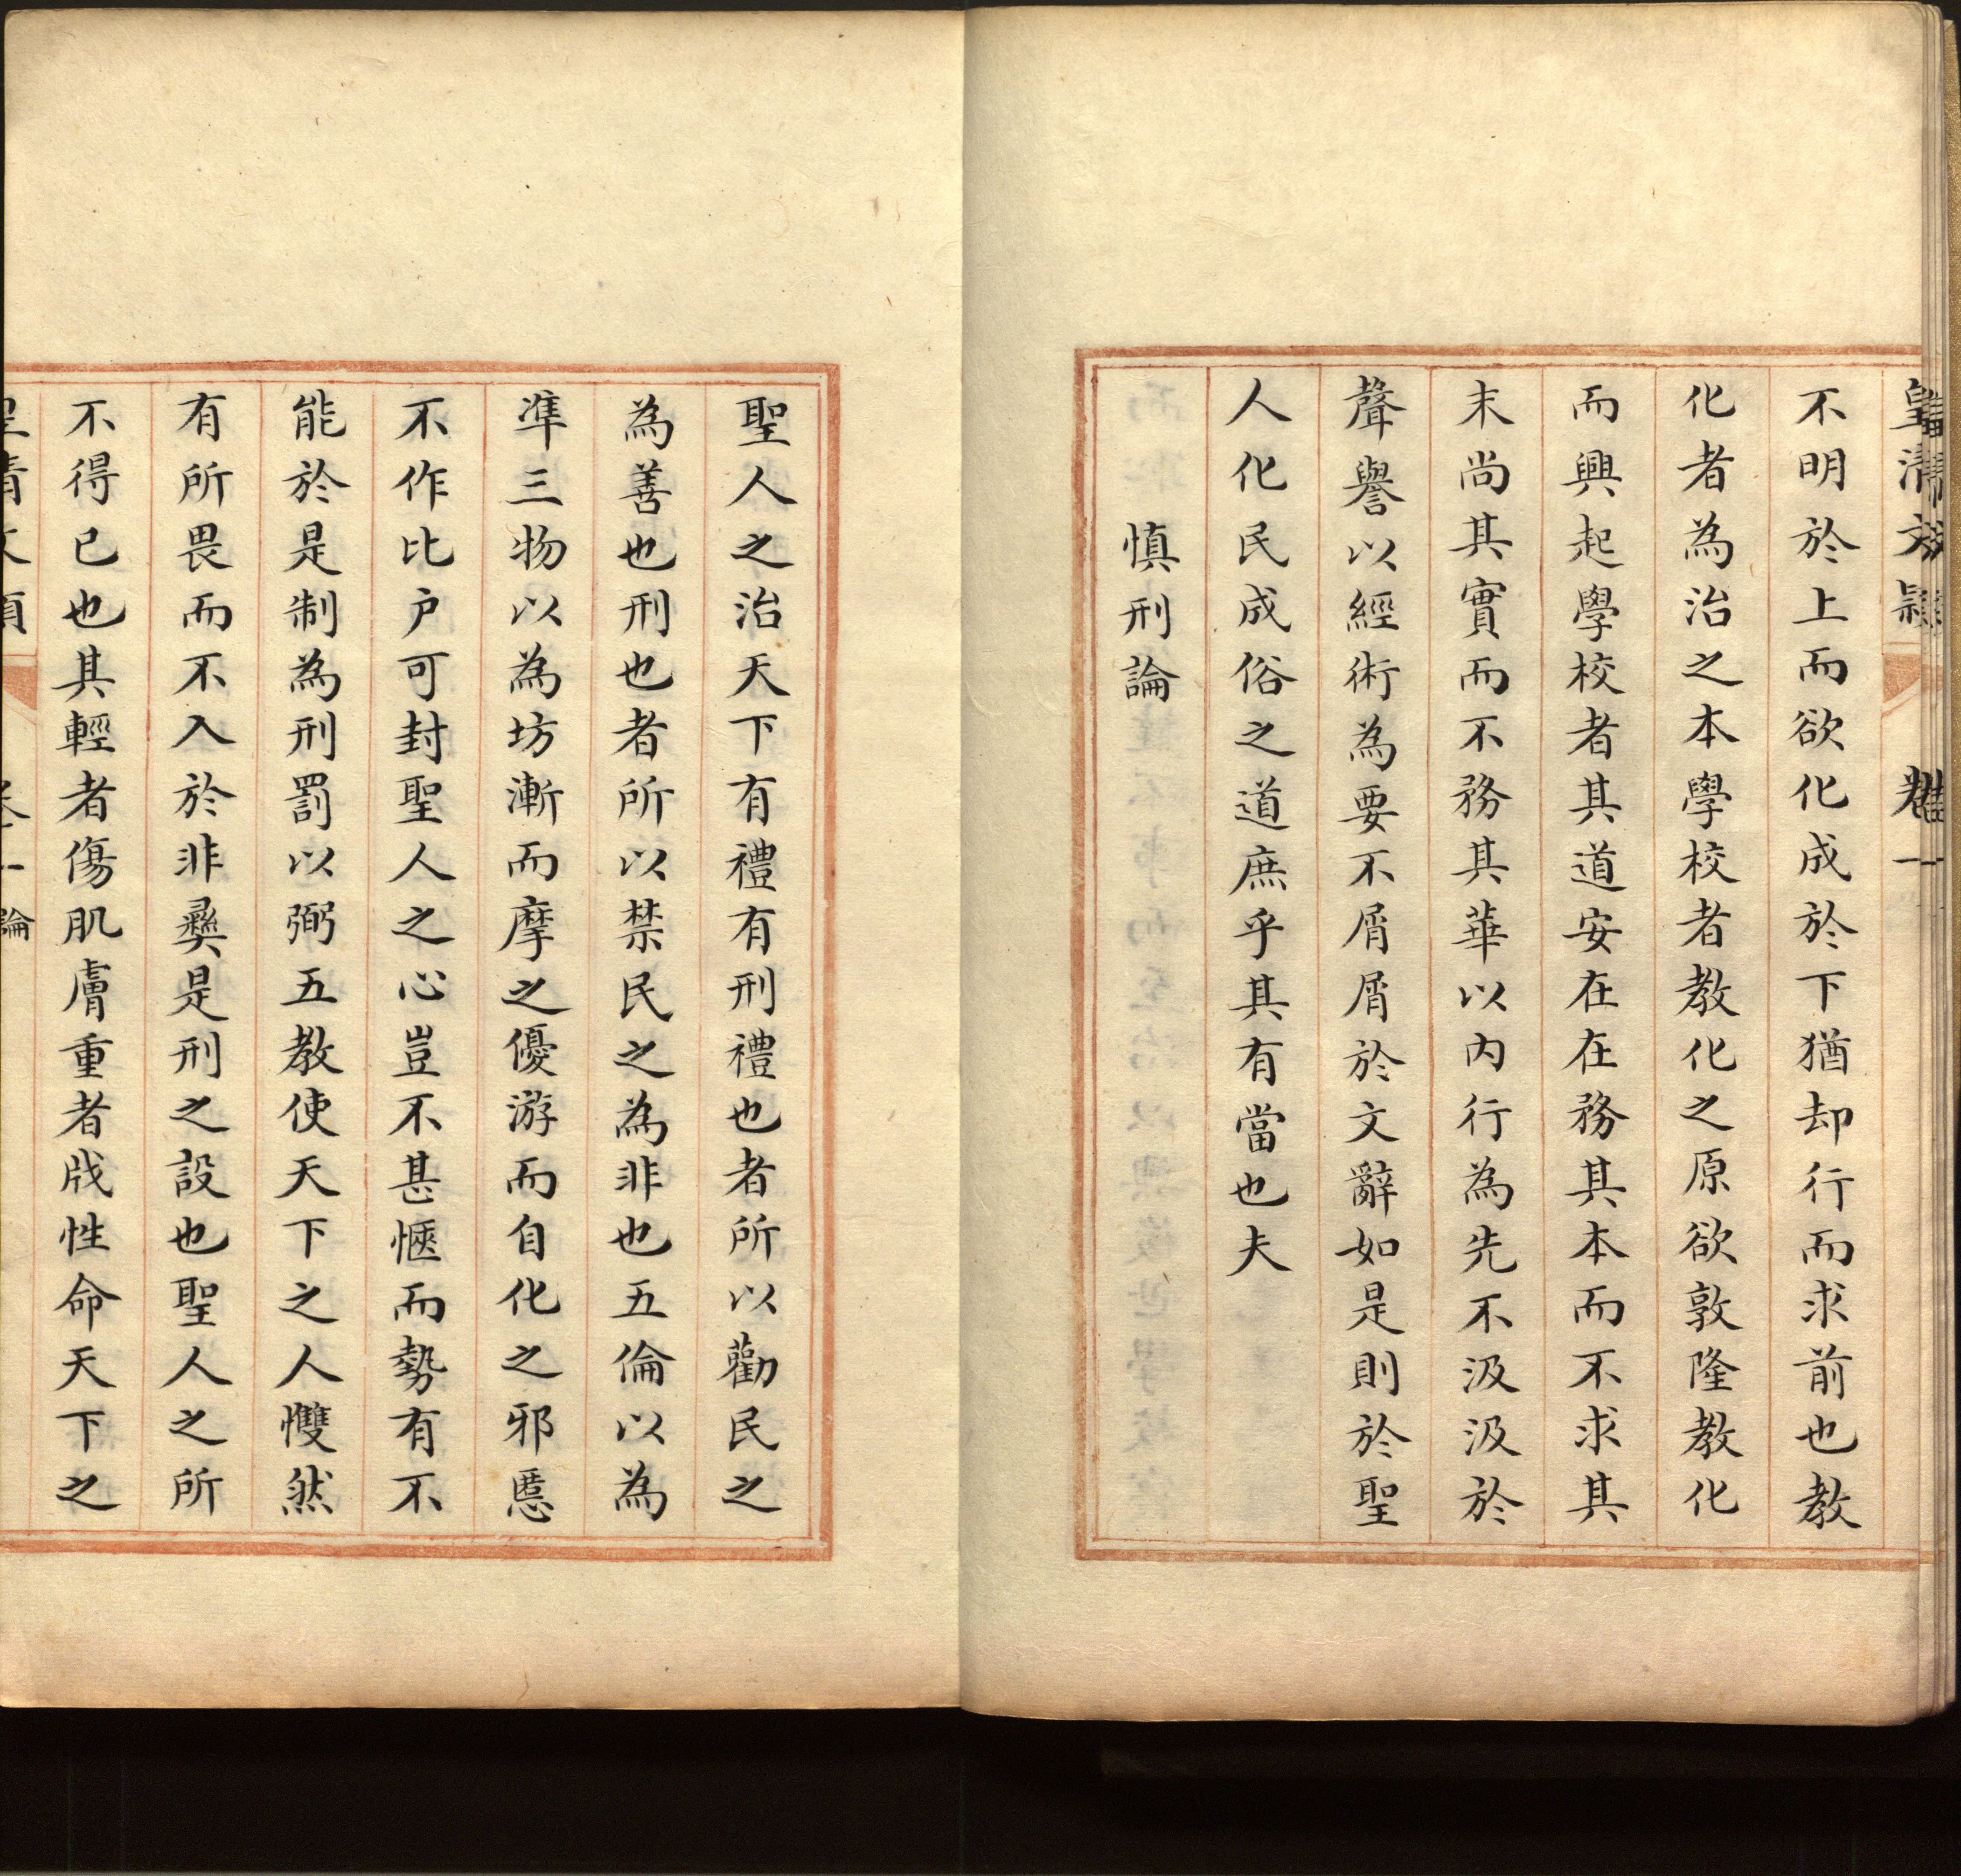 皇清文穎 卷一
不明於上而欲化成於下猶却行而求前也教
化者為治之本學校者教化之原欲敦隆教化
而興起學校者其道安在在務其本而不求其
末尚其實而不務其華以内行為先不汲汲於
聲譽以經術為要不屑屑於文辭如是則於聖
人化民成俗之道庶乎其有當也夫
慎刑論
聖人之治天下有禮有刑禮也者所以勸民之
為善也刑也者所以禁民之為非也五倫以為
準三物以為坊漸而摩之優游而自化之邪慝
不作比户可封聖人之心豈不甚愜而勢有不
能於是制為刑罰以弼五教使天下之人戄然
有所畏而不入於非彜是刑之設也聖人之所
不得已也其輕者傷肌膚重者戕性命天下之
皇清文穎 卷一 論